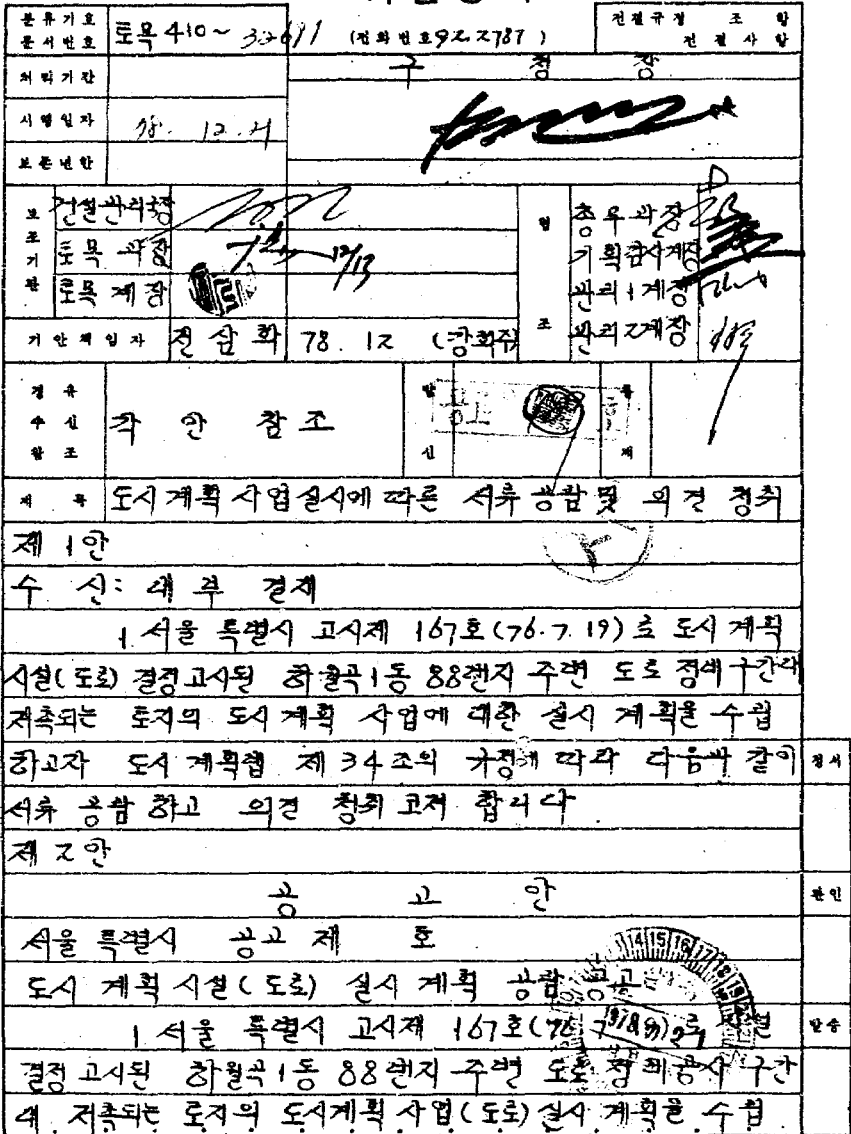 분류기호 문서번호 토목 410~ (전화번호 92.2787) 전결규정 조 항 전결사항
처리기간 구 청 장
시행일자 78. 12. 21
보존년한
보조기관 건설관리국장 협조 총무과장
토목 과장 12/13 기획감사계장
토목 계장 관리1계장
기안책임자 전삼화 78. 12 관리2계장
경유 수신 참조 각 안 참조 발신
제 목 도시계획 사업실시에 따른 서류 공람 및 의견 청취
제 1안
수 신: 내부 결재
1 서울 특별시 고시제 167호(76.7.19)로 도시 계획
시설(도로) 결정고시된 하월곡1동 88번지 주변 도로 정비 구간내
저촉되는 토지의 도시 계획 사업에 대한 실시 계획을 수립
하고자 도시 계획법 제 34조의 규정에 따라 다음과 같이 정서
서류 공람 하고 의견 청취 코저 합니다
제 2안
공 고 안 관인
서울 특별시 공고 제 호
도시 계획 시설(도로) 실시 계획 공람 공고
1 서울 특별시 고시제 167호(76 발송
결정 고시된 하월곡1동 88번지 주변 도로 정비공사 구간
내 저촉되는 토지의 도시계획 사업(도로)실시 계획을 수립